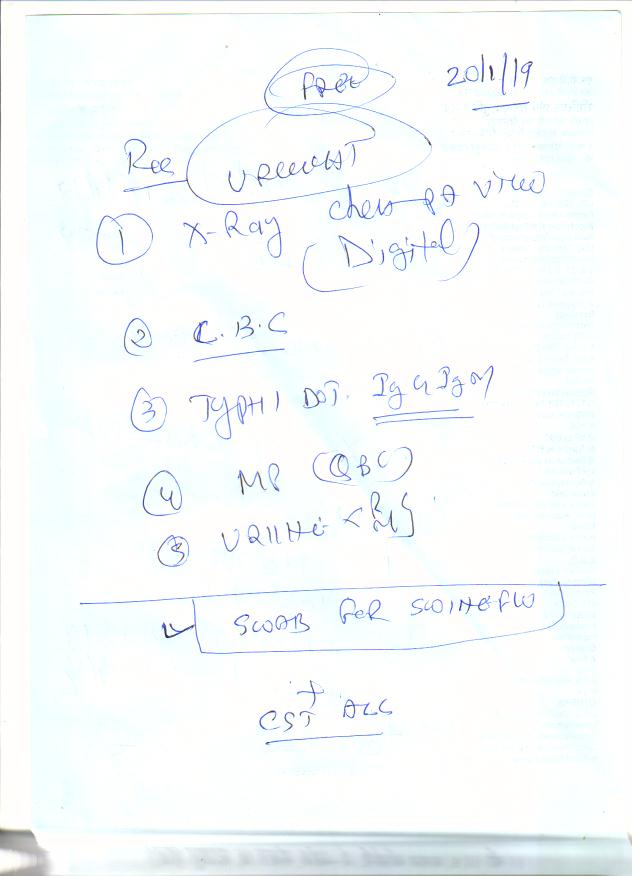 FREE 20/1/19
Rec URGENT
① X-Ray chest PA view
(Digital)
② C.B.C
③ TYPHI DOT. IgG IgM
④ MP (QBC)
⑤ URINE < R/M
✓ SWAB FOR SWINEFLU
+
CST ALL